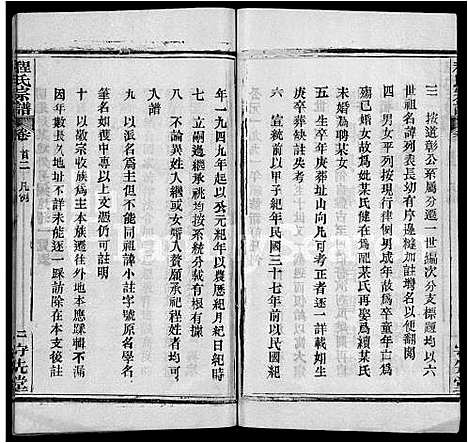 三 按道彰公系屬分遷一世編次分支標題均以六
世祖名諱列表長幼有序邊縫加註增名以便翻閱
四 男女平列按現行律例已成年為卒童年亡為
殤已婚女故為妣某氏健在為配某氏再娶為續某氏
未婚為聘某女
五 生卒年庚葬址山向凡可考正者逐一詳載如生
庚卒葬等六十年以前以甲子紀年民國三十七年前以民國紀
年一九四九年起以公元紀年以農歷紀月紀日紀時
七 立嗣邊繼承祧均按系統分載有根有據
八 不論異姓人繼或女婿入贅願承祀程姓者均可
入譜
九 以派名爲主但不能同祖諱小註字號原名學名
筆名如與專以上文憑仍可註明
十 以敬宗收族爲主本族遷往外地本應踩輯不漏
因年數長久地址不詳未能逐一踩訪除在本支後註
程氏宗譜 卷首二 凡例
二 守先堂